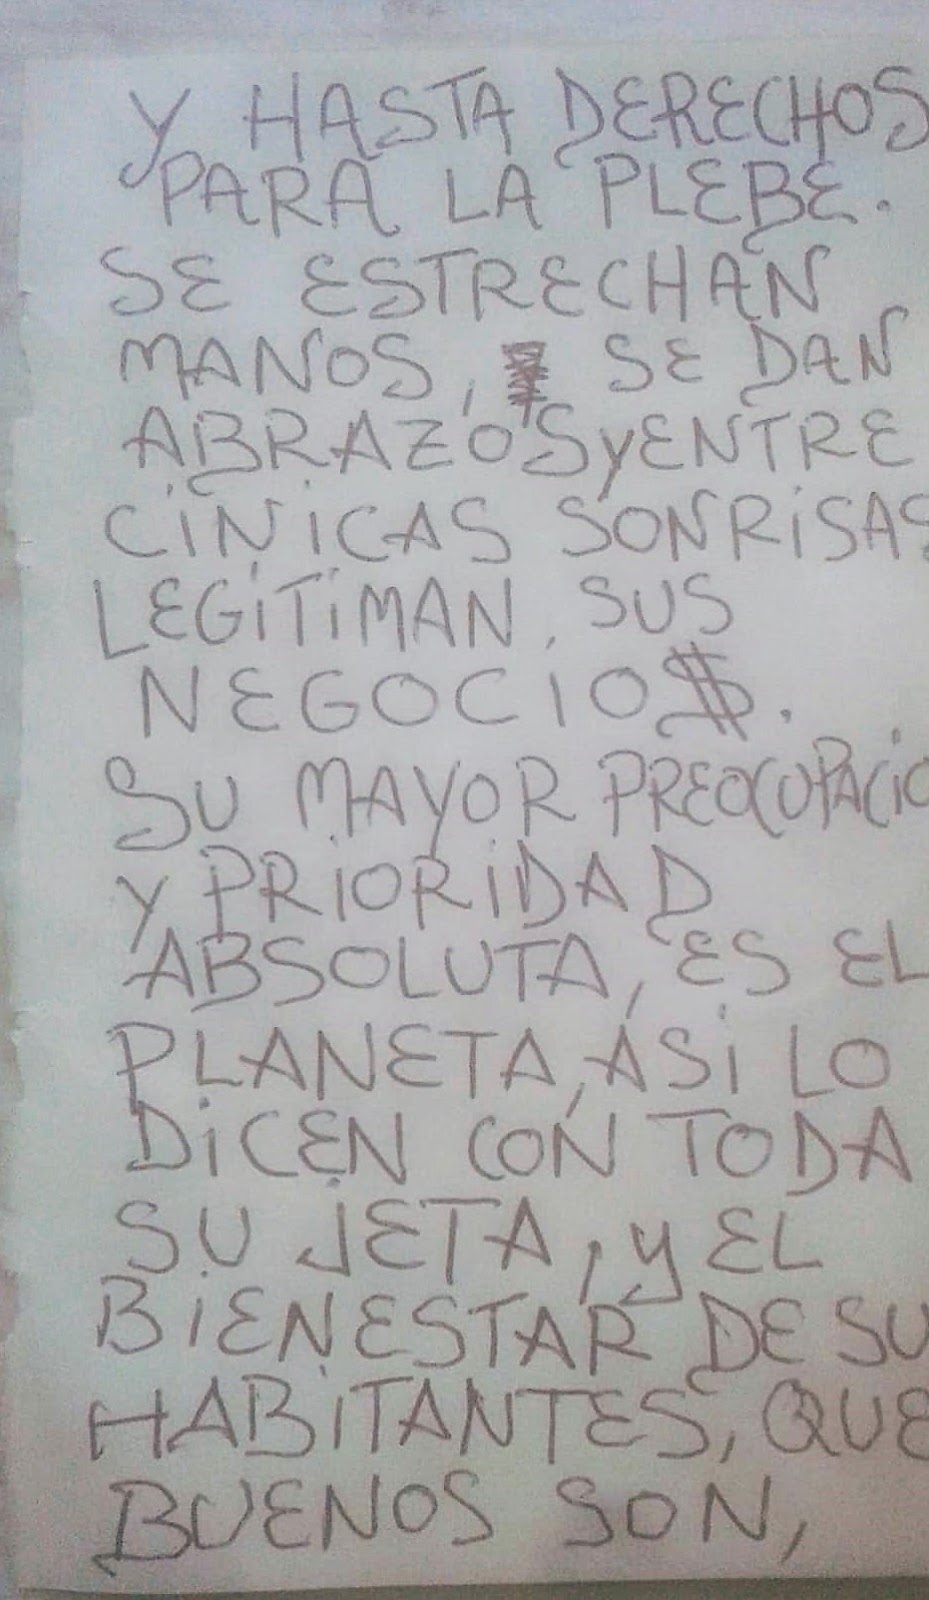 Y HASTA DERECHOS
PARA LA PLEBE.
SE ESTRECHAN
MANOS, SE DAN
ABRAZOS Y ENTRE
CINICAS SONRISAS
LEGITIMAN, SUS
NEGOCIO$.
SU MAYOR PREOCUPACIO
Y PRIORIDAD
ABSOLUTA, ES EL
PLANETA, ASI LO
DICEN CON TODA
SU JETA, Y EL
BIENESTAR DE SU
HABITANTES, QUE
BUENOS SON,